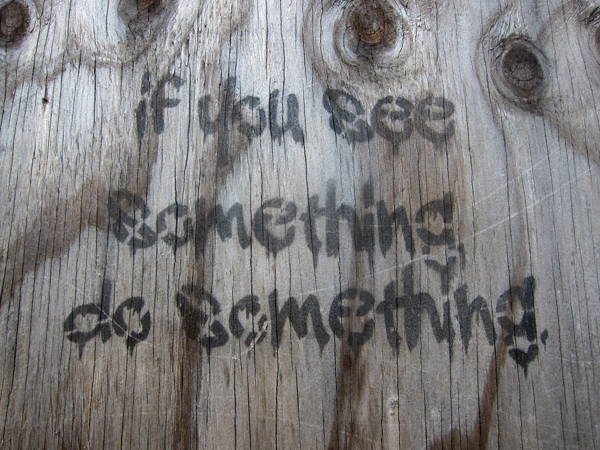 if you see
something,
do something.